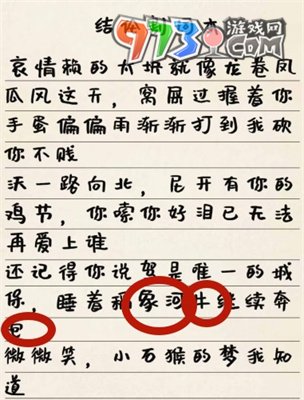 973游戏网
哀情赖的太块就像龙卷凤
瓜风这开，窝屈过握着你
手蛋偏偏雨渐渐打到我砍
你不贱
沃一路向北，尼开有你的
鸡节，你嗦你好泪已无法
再爱上谁
还记得你说驾是唯一的城
保，睡着稻象河牛继续奔
包
微微笑，小石猴的梦我知
道